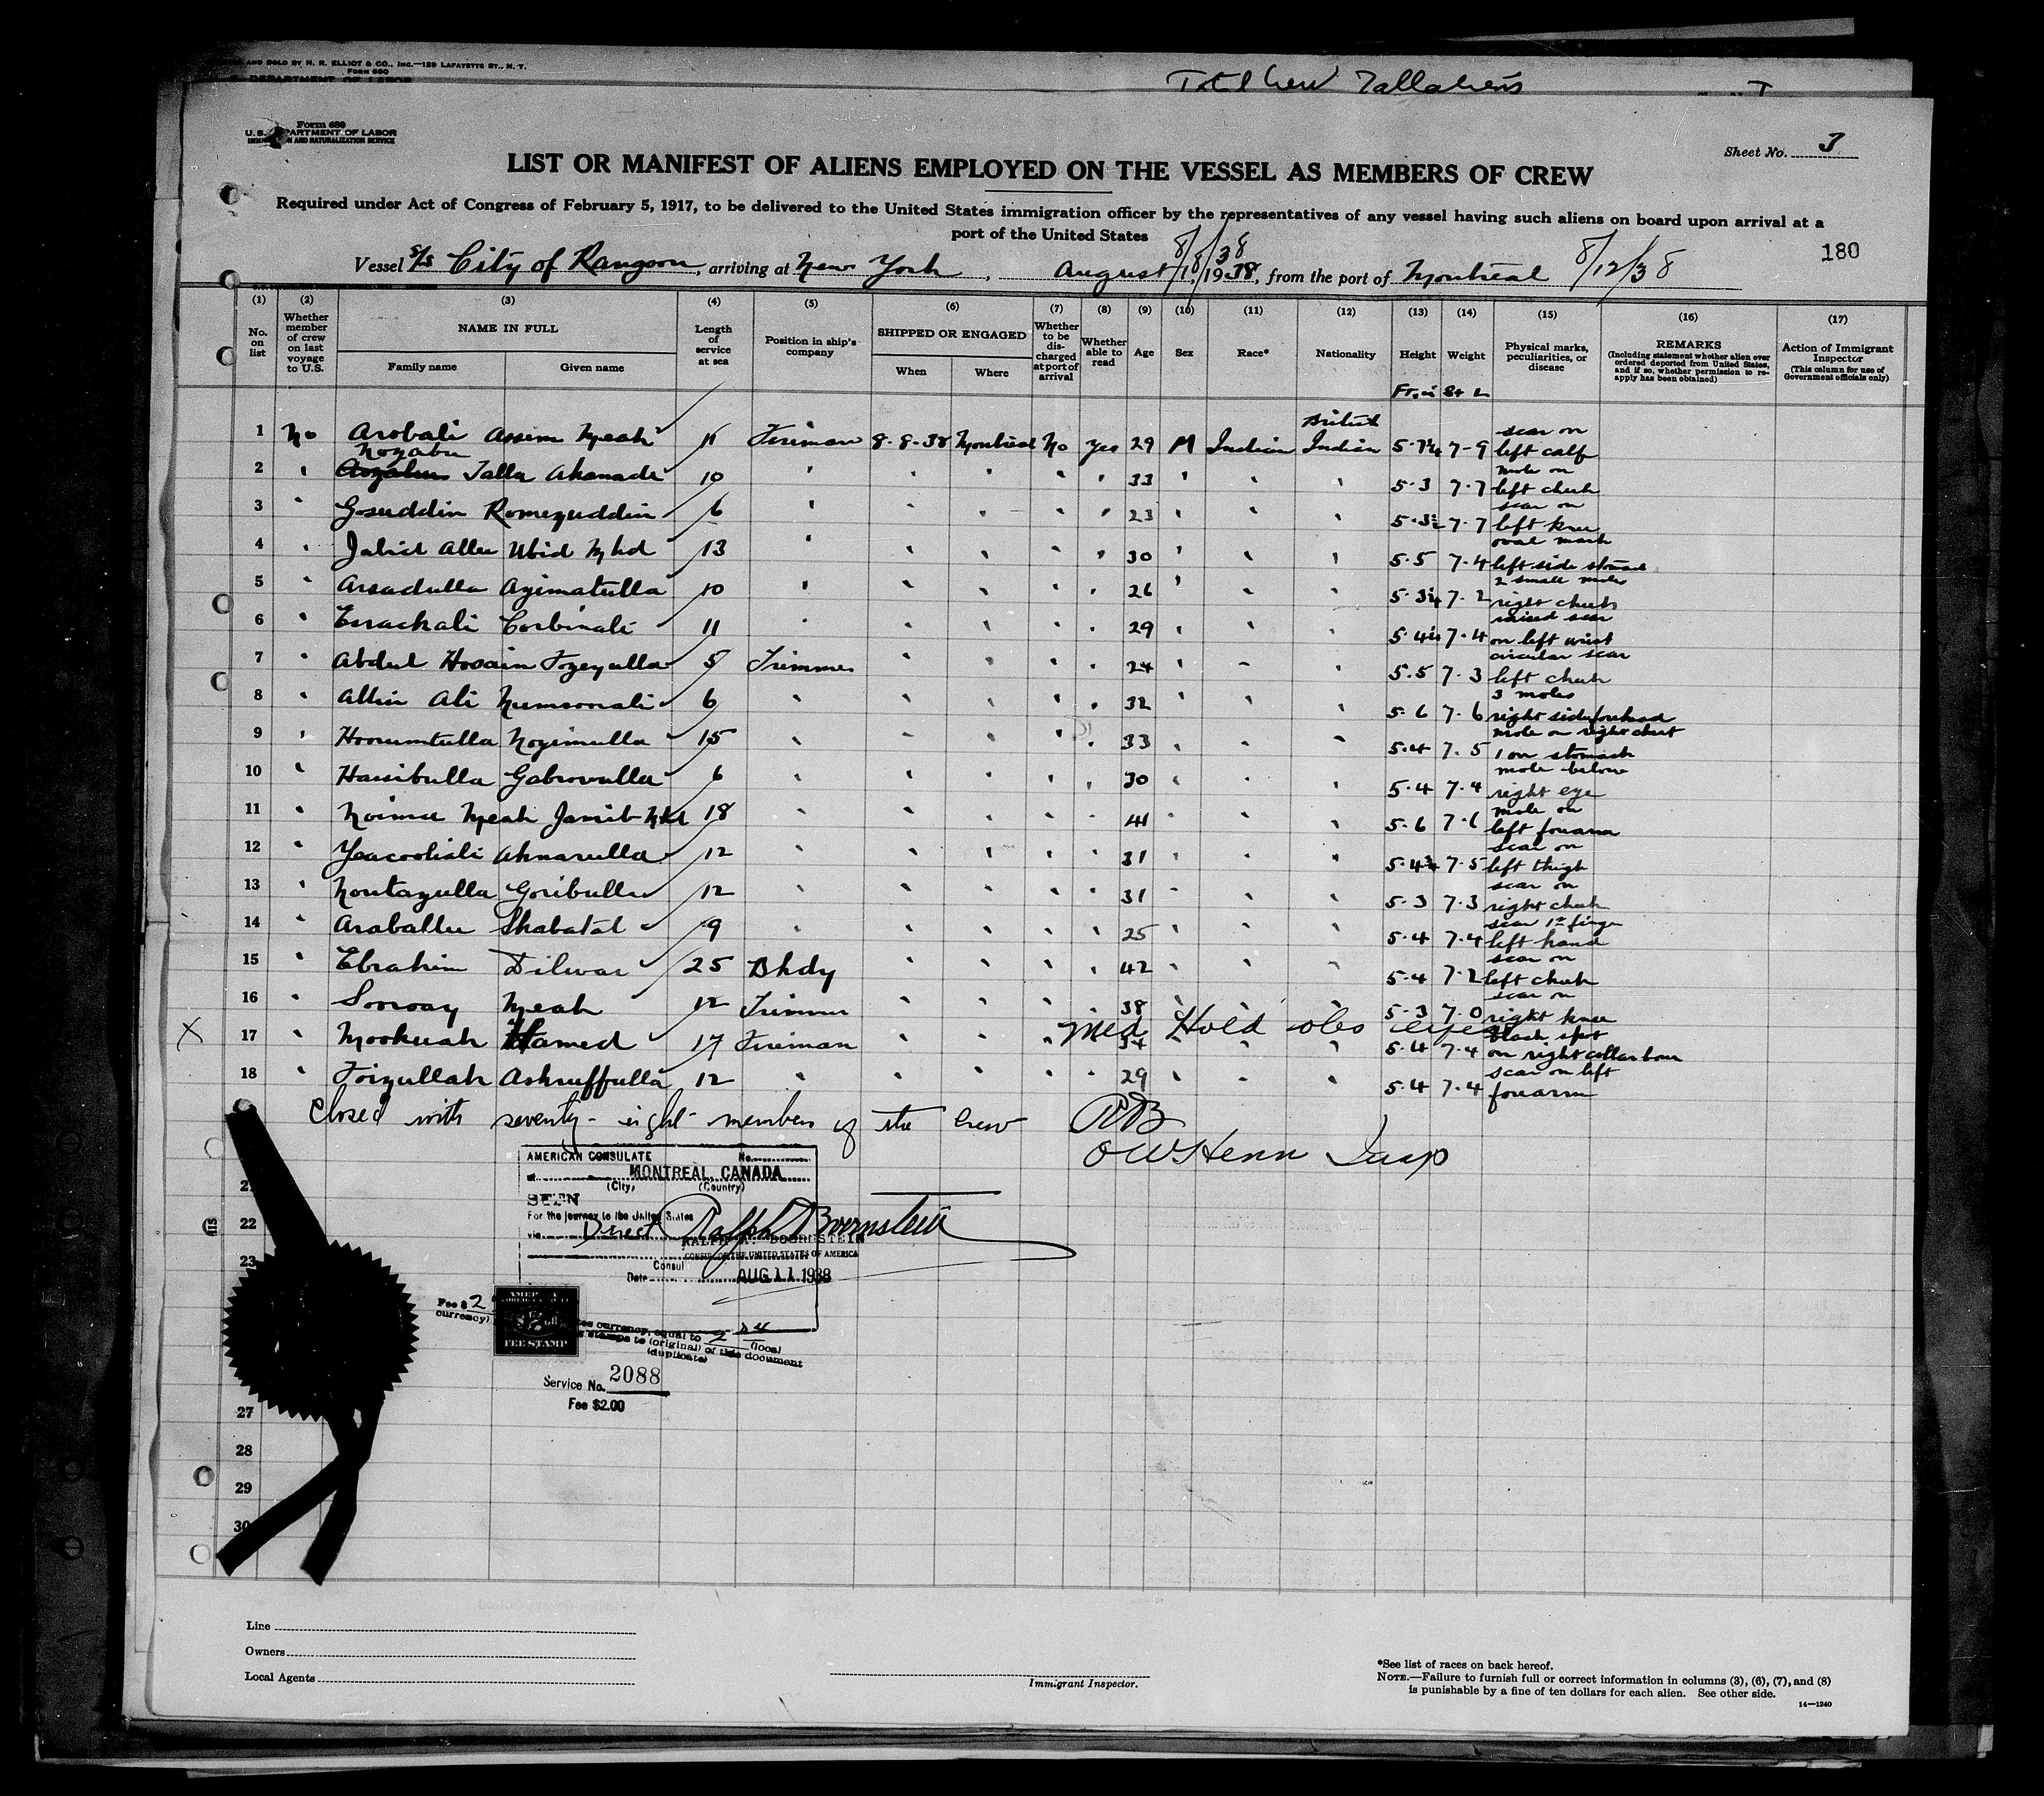 AND SOLD BY H. R. ELLIOT & CO., INC.—129 LAFAYETTE ST., N. Y.
FORM 680
DEPARTMENT OF LABOR
Total Crew
Form 680
U. S. DEPARTMENT OF LABOR
IMMIGRATION AND NATURALIZATION SERVICE
Sheet No. 3
LIST OR MANIFEST OF ALIENS EMPLOYED ON THE VESSEL AS MEMBERS OF CREW
Required under Act of Congress of February 5, 1917, to be delivered to the United States immigration officer by the representatives of any vessel having such aliens on board upon arrival at a
port of the United States
180
Vessel S/S City of Rangoon, arriving at New York, August 8/18/38, 1938, from the port of Montreal 8/12/38
(1) No. on list
(2) Whether member of crew on last voyage to U.S.
(3) NAME IN FULL
Family name Given name
(4) Length of service at sea
(5) Position in ship's company
(6) SHIPPED OR ENGAGED
When Where
(7) Whether to be discharged at port of arrival
(8) Whether able to read
(9) Age
(10) Sex
(11) Race*
(12) Nationality
(13) Height
(14) Weight
(15) Physical marks, peculiarities, or disease
(16) REMARKS (Including statement whether alien ever ordered deported from United States, and if so, whether permission to reapply has been obtained)
(17) Action of Immigrant Inspector (This column for use of Government officials only)
Ft. in St L
1 No Arobali Assim Meah 11 Fireman 8-8-38 Montreal No Yes 29 M Indian British Indian 7-9 scar on left calf
2 " Nozabu Talla Akanada 10 " " " " " 33 " " " 5-3 7-7 mole on left cheek
3 " Gosuddin Romezuddin 6 " " " " " 23 " " " 5-3½ 7-7 scar on left knee
4 " Jabid Allee Ubid Mhd 13 " " " " " 30 " " " 5-5 7-4 oval mark left side stomach
5 " Arsadulla Azimatulla 10 " " " " " 26 " " " 7-2 2 small moles right cheek
6 " Esrackali Corbinali 11 " " " " " 29 " " " 7-4 raised scar on left wrist
7 " Abdul Hosain Fozeyulla 5 Trimmer " " " " 24 " " " 5-5 7-3 circular scar left cheek
8 " Allin Ali Numsonali 6 " " " " " 32 " " " 5-6 7-6 3 moles right side forehead
9 " Hoorumtulla Nozimulla 15 " " " " " 33 " " " 5-4 7-5 mole on right chest 1 on stomach
10 " Hassibulla Gabrovulla 6 " " " " " 30 " " " 5-4 7-4 mole below right eye
11 " Noimu Meah Jamit Mhd 18 " " " " " 41 " " " 5-6 7-6 mole on left forearm
12 " Yeacoobali Aknarulla 12 " " " " " 31 " " " 5-4¾ 7-5 scar on left thigh
13 " Montazulla Goribulla 12 " " " " " 31 " " " 5-3 7-3 scar on right cheek
14 " Araballee Shabatat 9 " " " " " 25 " " " 5-4 7-4 scar 1st finger left hand
15 " Ebrahim Dilwar 25 Bhdy " " " " 42 " " " 5-4 7-2 scar on left cheek
16 " Soovay Meah 12 Trimmer " " " " 38 " " " 5-3 7-0 scar on right knee
X 17 " Mookuah Hamed 17 Fireman " " " Med Hold obs eyes 34 " " " 5-4 7-4 black spot on right collar bone
18 " Foizullah Ashruffulla 12 " " " " " 29 " " " 5-4 7-4 scar on left forearm
Closed with seventy-eight members of the crew RDB
OWStenn Insp
AMERICAN CONSULATE No.
at MONTREAL, CANADA
(City) (Country)
SEEN
For the journey to the United States
via Direct
Ralph A Boernstein
RALPH A. BOERNSTEIN
CONSUL OF THE UNITED STATES OF AMERICA
Consul
Date AUG 11 1938
22
23
Fee $ 2
currency)
FEE STAMP
currency, equal to 2 (local
stamps to (original) of this document
(duplicate)
Service No. 2088
Fee $2.00
27
28
29
30
Line
Owners
Local Agents
Immigrant Inspector.
*See list of races on back hereof.
NOTE.—Failure to furnish full or correct information in columns (3), (6), (7), and (8)
is punishable by a fine of ten dollars for each alien. See other side.
14—1240